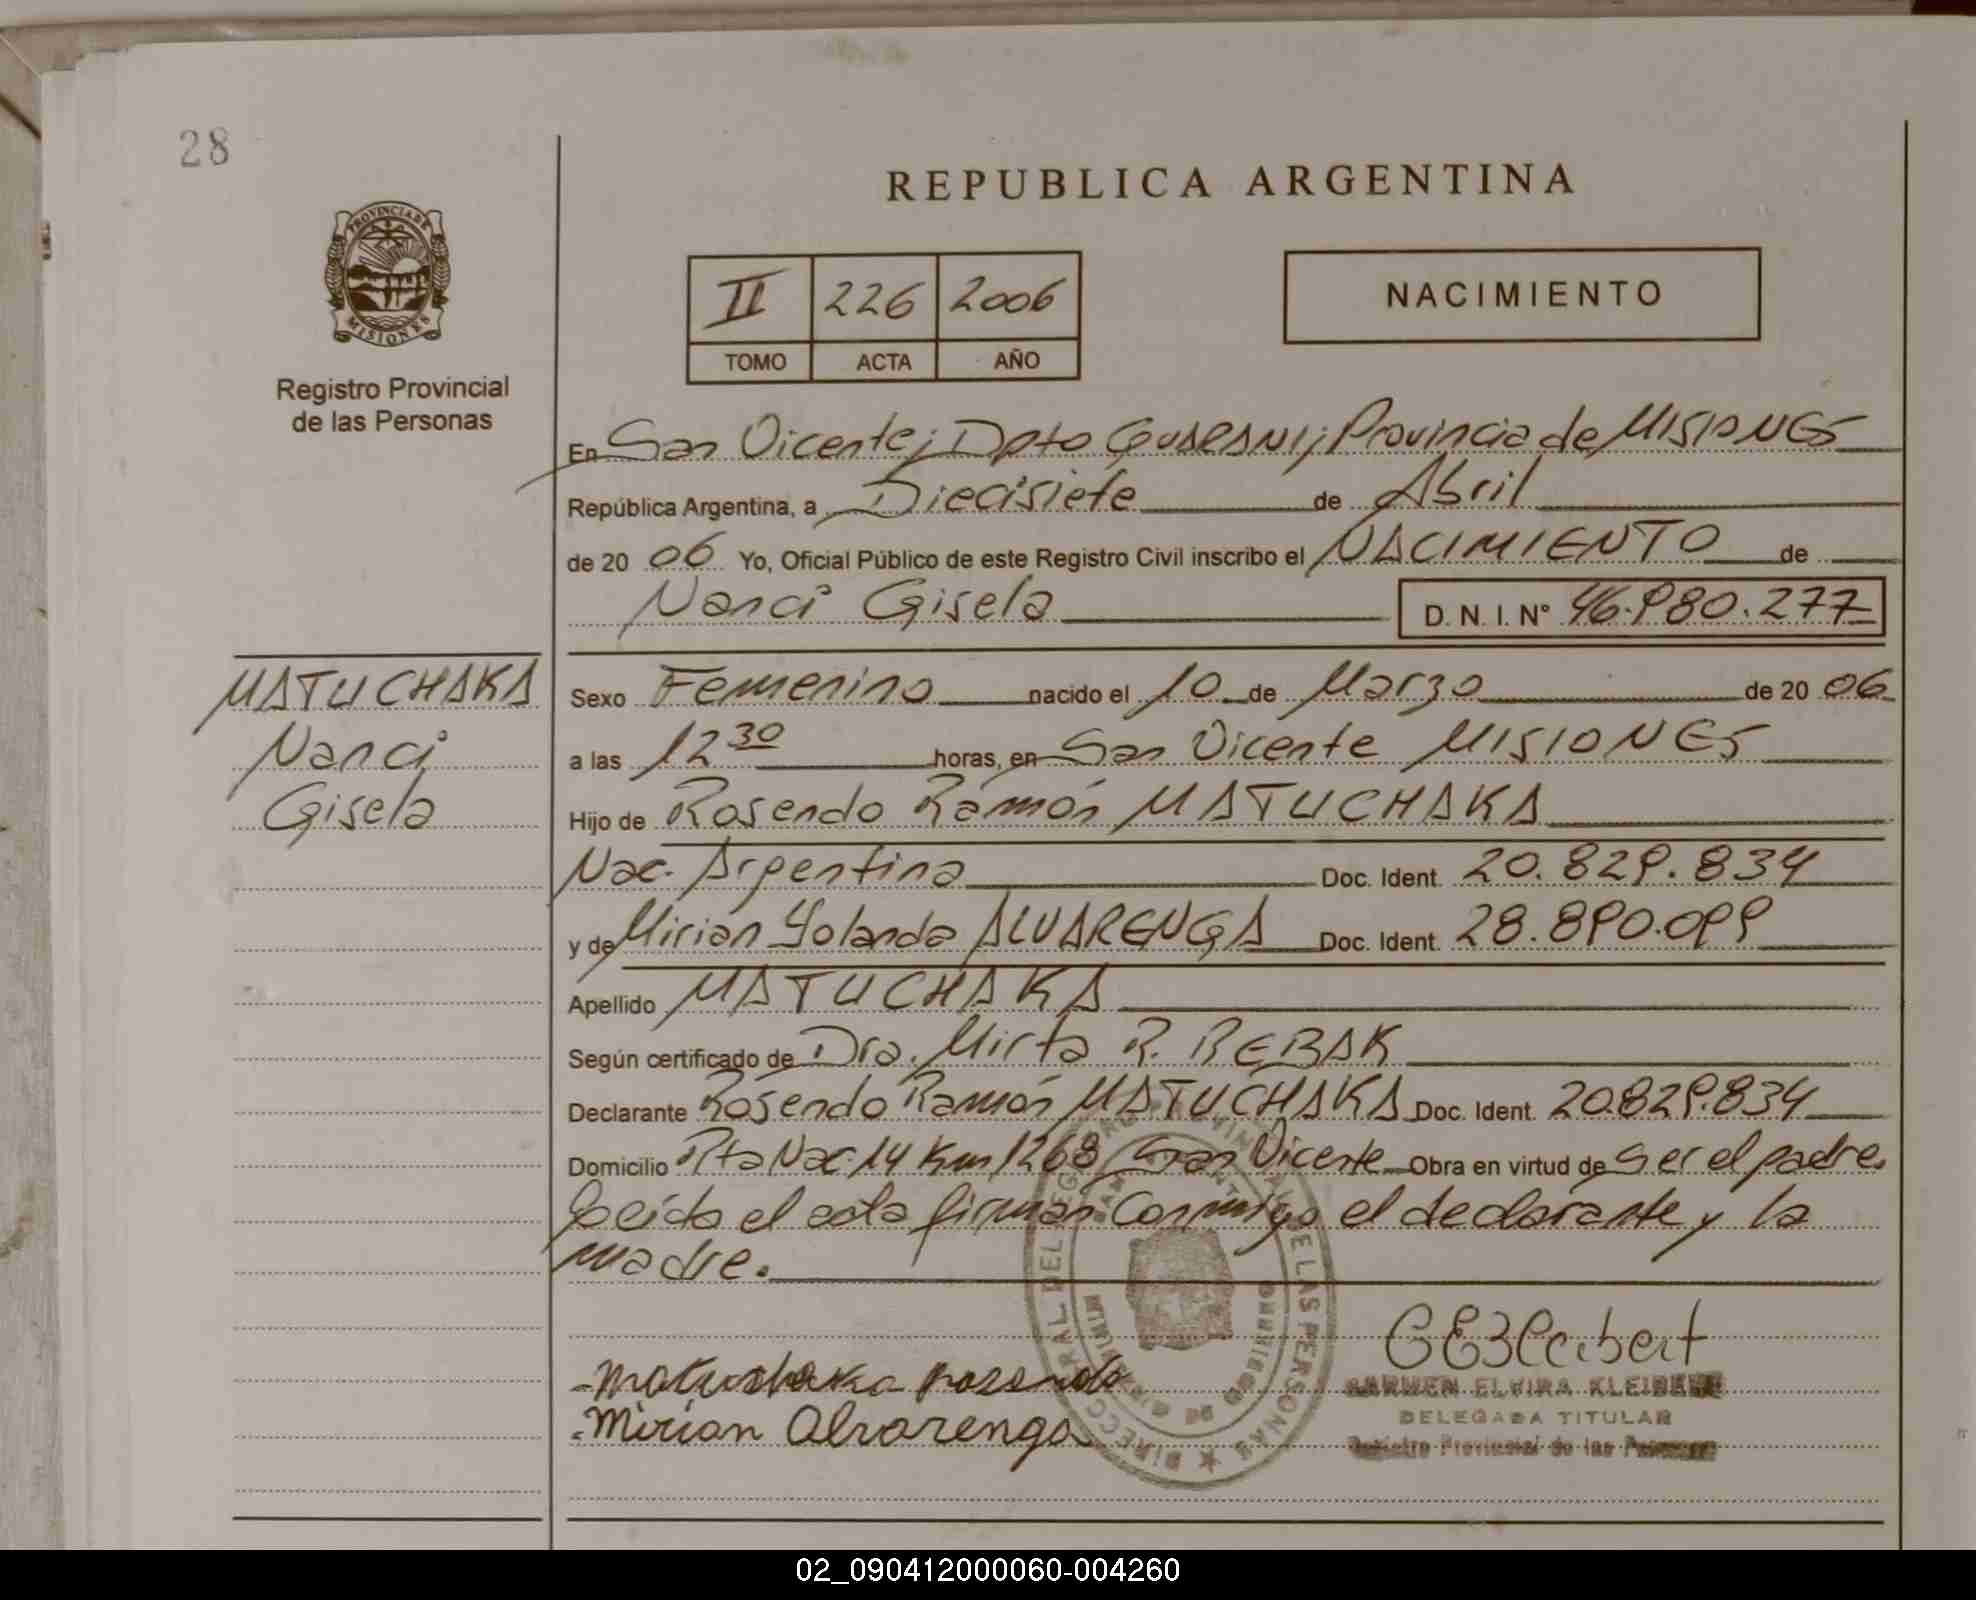 28
REPUBLICA ARGENTINA
PROVINCIA DE
MISIONES
Registro Provincial
de las Personas
II 226 2006
TOMO ACTA AÑO
NACIMIENTO
En San Vicente; Dpto Guarani; Provincia de MISIONES
República Argentina, a Diecisiete de Abril
de 20 06 Yo, Oficial Público de este Registro Civil inscribo el NACIMIENTO de
Nanci Gisela D. N. I. N° 46.980.277
MATUCHAKA
Nanci
Gisela
Sexo Femenino nacido el 10 de Marzo de 20 06
a las 12 30 horas, en San Vicente MISIONES
Hijo de Rosendo Ramón MATUCHAKA
Nac. Argentina Doc. Ident. 20.829.834
y de Mirian Yolanda ALVARENGA Doc. Ident. 28.890.099
Apellido MATUCHAKA
Según certificado de Dra. Mirta R. REBAK
Declarante Rosendo Ramón MATUCHAKA Doc. Ident. 20.829.834
Domicilio Rta Nac. 14 Km 1268 San Vicente Obra en virtud de ser el padre.
Leída el acta firman conmigo el declarante y la
madre.
Matuchaka Rosendo
Mirian Alvarenga
CARMEN ELVIRA KLEIBERT
DELEGADA TITULAR
Registro Provincial de las Personas
02_090412000060-004260